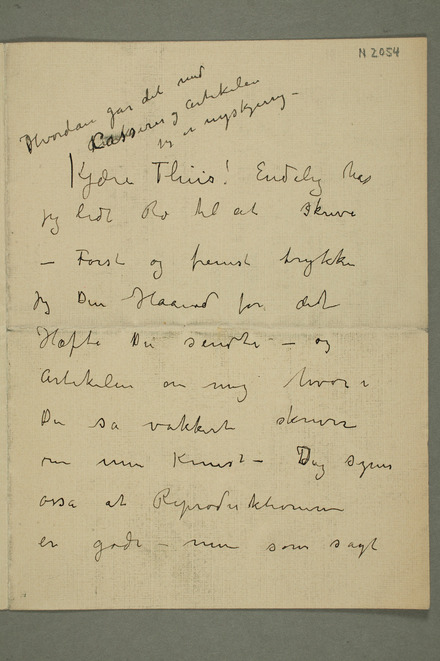 N 2054
Hvordan går det med
Kasserer og Artikelen
jeg er nysgjerrig –
Kjære Thiis! Endelig har
jeg lidt Ro til at skrive
– Først og fremst trykke
jeg Din Haand for det
Hæfte Du sendte – og
Artikelen om mig hvor i
Du så vakkert skriver
om min Kunst – Jeg synes
også at Reproduktionerne
er gode – men som sagt